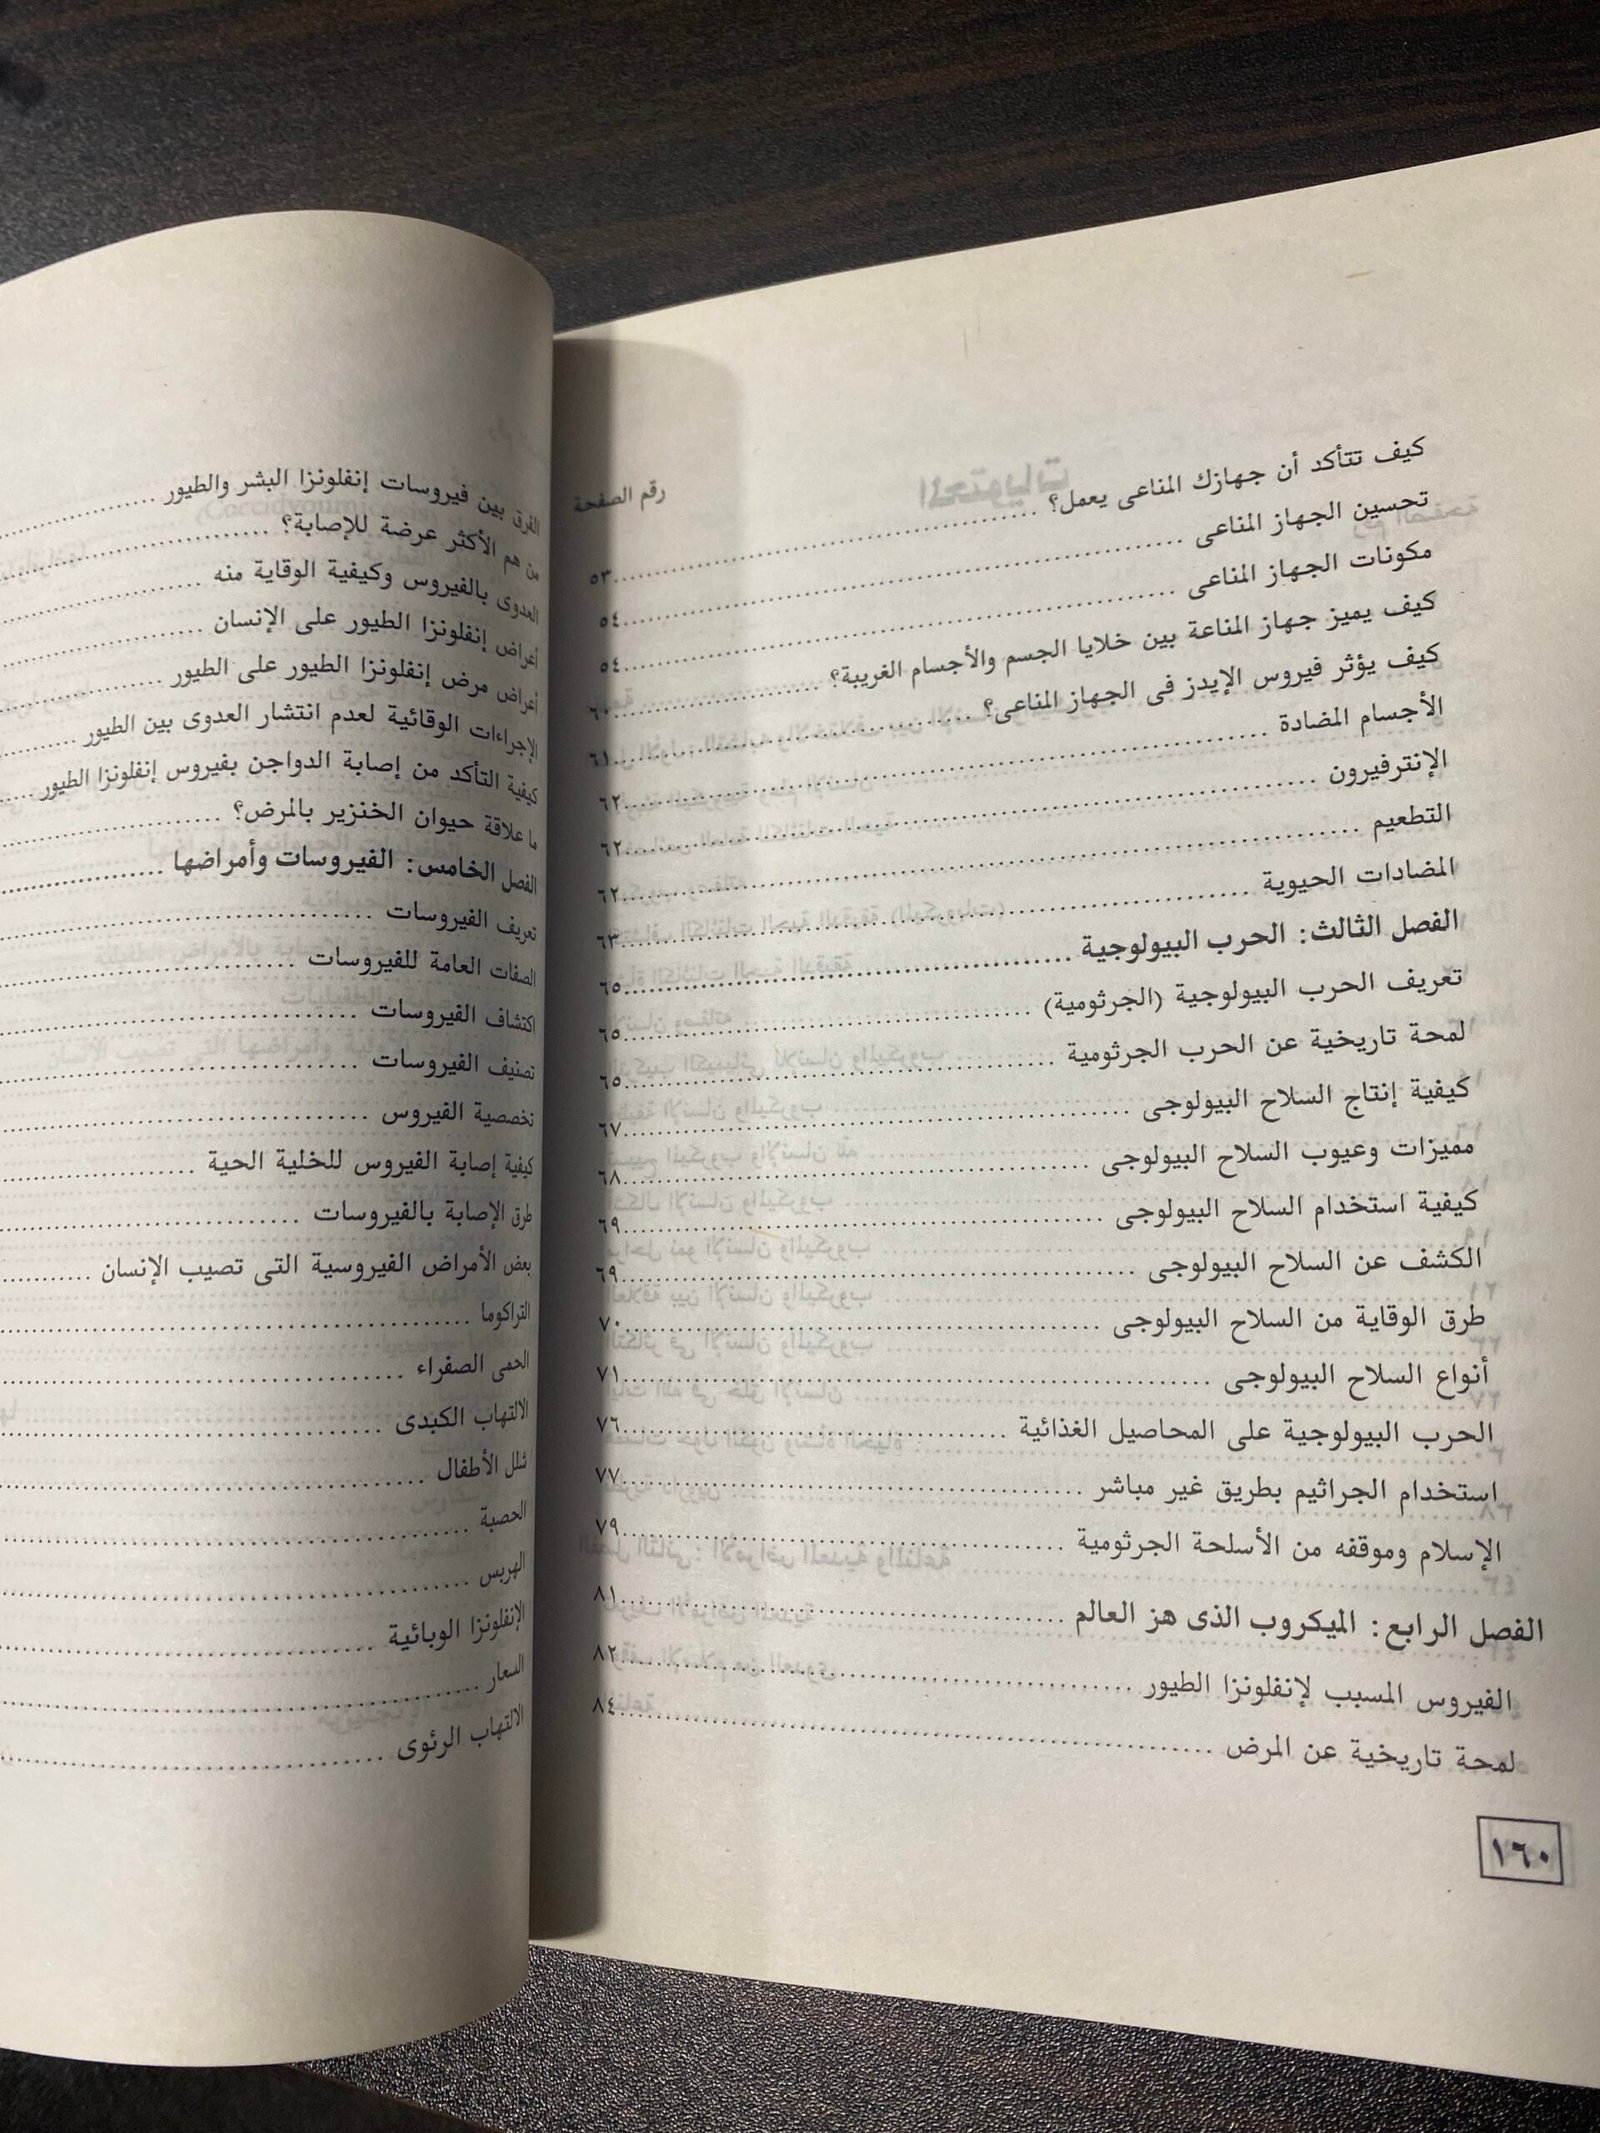 رقم الصفحة
كيف تتأكد أن جهازك المناعى يعمل؟ ........ ٥٣
تحسين الجهاز المناعى ........ ٥٤
مكونات الجهاز المناعى ........ ٥٤
كيف يميز جهاز المناعة بين خلايا الجسم والأجسام الغريبة؟ ........ ٦٠
كيف يؤثر فيروس الإيدز فى الجهاز المناعى؟ ........ ٦١
الأجسام المضادة ........ ٦٢
الإنترفيرون ........ ٦٢
التطعيم ........ ٦٢
المضادات الحيوية ........ ٦٣
الفصل الثالث: الحرب البيولوجية ........ ٦٥
تعريف الحرب البيولوجية (الجرثومية) ........ ٦٥
لمحة تاريخية عن الحرب الجرثومية ........ ٦٥
كيفية إنتاج السلاح البيولوجى ........ ٦٧
مميزات وعيوب السلاح البيولوجى ........ ٦٨
كيفية استخدام السلاح البيولوجى ........ ٦٩
الكشف عن السلاح البيولوجى ........ ٦٩
طرق الوقاية من السلاح البيولوجى ........ ٧٠
أنواع السلاح البيولوجى ........ ٧١
الحرب البيولوجية على المحاصيل الغذائية ........ ٧٦
استخدام الجراثيم بطريق غير مباشر ........ ٧٧
الإسلام وموقفه من الأسلحة الجرثومية ........ ٧٩
الفصل الرابع: الميكروب الذى هز العالم ........ ٨١
الفيروس المسبب لإنفلونزا الطيور ........ ٨٢
لمحة تاريخية عن المرض ........ ٨٤
١٦٠
الفرق بين فيروسات إنفلونزا البشر والطيور ........
من هم الأكثر عرضة للإصابة؟ ........
العدوى بالفيروس وكيفية الوقاية منه ........
أعراض إنفلونزا الطيور على الإنسان ........
أعراض مرض إنفلونزا الطيور على الطيور ........
الإجراءات الوقائية لعدم انتشار العدوى بين الطيور ........
كيفية التأكد من إصابة الدواجن بفيروس إنفلونزا الطيور ........
ما علاقة حيوان الخنزير بالمرض؟ ........
الفصل الخامس: الفيروسات وأمراضها ........
تعريف الفيروسات ........
الصفات العامة للفيروسات ........
اكتشاف الفيروسات ........
تصنيف الفيروسات ........
تخصصية الفيروس ........
كيفية إصابة الفيروس للخلية الحية ........
طرق الإصابة بالفيروسات ........
بعض الأمراض الفيروسية التى تصيب الإنسان ........
التراكوما ........
الحمى الصفراء ........
الالتهاب الكبدى ........
شلل الأطفال ........
الحصبة ........
الهربس ........
الإنفلونزا الوبائية ........
السعار ........
الالتهاب الرئوى ........